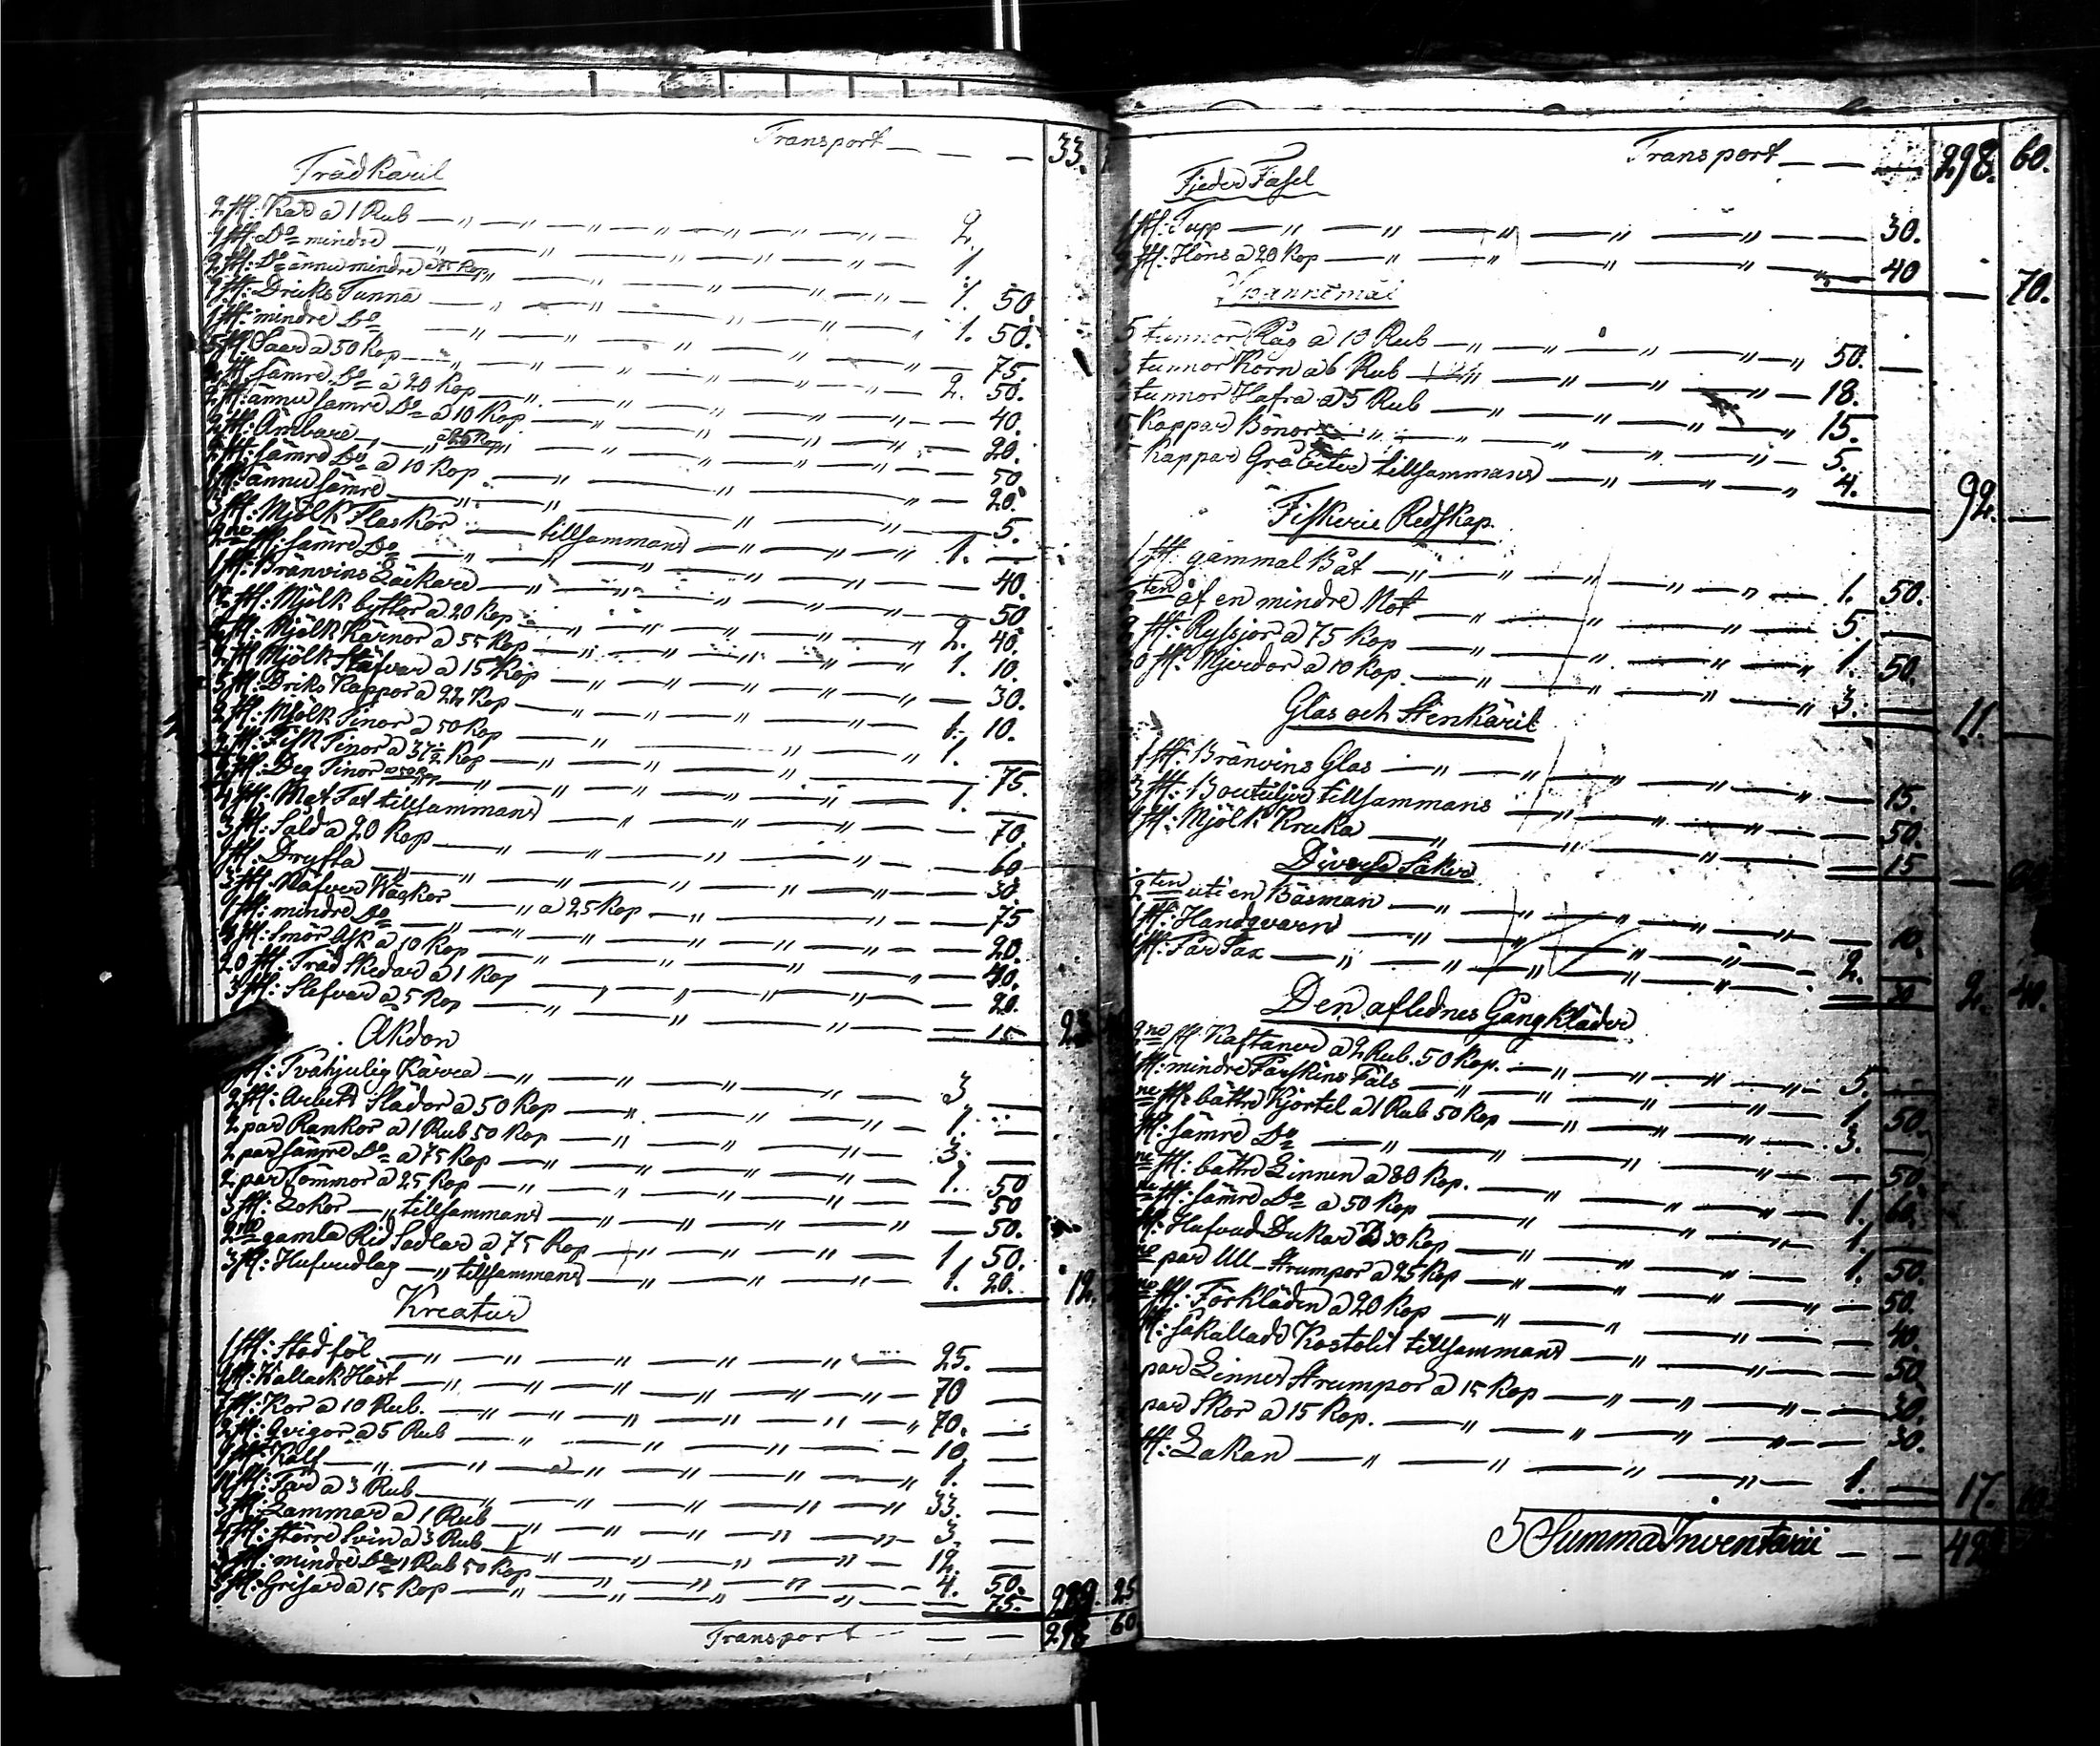 Transport — — — 33.
Trädkäril
2 st: Kar a 1 Rub — 2.
1 st: Do mindre — 1
2 st: Do ännu mindre a 75 Kop — 1. 50
1 st: Dricks Tunna — 1. 50.
1 st: mindre Do — 75.
5 st: Såar a 50 Kop — 2. 50.
2 st: sämre Do a 20 Kop — 40.
2 st: ännu sämre Do a 10 Kop — 20.
2 st: Ämbare a 25 Kop — 50
2 st: sämre Do a 10 Kop — 20.
1 st: ännu sämre — 5.
3 st: Mjölk Flaskor — tillsammans — 1. —
2ne st: sämre Do — 40.
1 st: Bränvins Läckare — 50
12 st: Mjölk byttor a 20 Kop — 2. 40.
2 st: Mjölk Kärnor a 55 Kop — 1. 10.
2 st: Mjölk Stäfvar a 15 Kop — 30.
5 st: Driks Kappor a 22 Kop — 1. 10.
2 st: Mjölk Tinor a 50 Kop — 1. —
2 st: Fisk Tinor a 37½ Kop — 75.
2 st: Deg Tinor a 50 Kop — 1. —
st: Mat Fat tillsammans — 70.
3 st: Såld a 20 Kop — 60
1 st: Dryfta — 30.
3 st: Näfver Wackor — a 25 Kop — 75
1 st: mindre Do — 20.
4 st: Smör Ask a 10 Kop — 40.
20 st: Träd Skedar a 1 Kop — 20.
3 st: Slefvar a 5 Kop — 15 23
Åkdon
1 st: Tvåhjulig Kärra — 3. —
2 st: Arbets Slädor a 50 Kop — 1. —
2 par Rankor a 1 Rub 50 Kop — 3. —
2 par sämre Do a 75 Kop — 1. 50
2 par Tömmor a 25 Kop — 50
3 st: Lokor — tillsammans — 50.
2ne gamla Rid Sadlar a 75 Kop — 1 50.
3 st: Hufvudlag — tillsammans — 1. 20. 12.
Kreatur
1 st: Stod föl — 25. —
1 st: Wallack Häst — 70 —
7 st: Kor a 10 Rub. — 70. —
2 st: Qvigor a 5 Rub — 10 —
1 st: Kalf — 1. —
11 st: Får a 3 Rub — 33. —
3 st: Lammar a 1 Rub — 3. —
4 st: större Svin a 3 Rub — 12. —
3 st: mindre Do a 1 Rub 50 Kop — 4. 50.
5 st: Grisar a 15 Kop — 75. 229. 25
Transport — — 298 60
Transport — — — 298. 60.
Fjeder Fäsel
1 st: Tupp — 30.
2 st: Höns a 20 Kop — 40 — 70.
Spannemål
5 tunnor Råg a 10 Rub — 50. —
3 tunnor Korn a 6 Rub — 18.
3 tunnor Hafra a 5 Rub — 15.
Kappar Bönor — 5.
Kappar Gråärter tillsammans — 4. 92. —
Fiskerie Redskap.
1 st: gammal Båt — 1. 50.
½ten af en mindre Not — 5. —
2 st: Ryssjor a 75 Kop — 1. 50.
30 st: Mjerdor a 10 Kop. — 3. — 11. —
Glas och Stenkäril
1 st: Bränvins Glas — 15.
3 st: Bouteljer tillsammans — 50.
1 st: Mjölk Kruka — 15 —
Diverse Saker
½ten uti en Bäsman — 10.
1 st: Handqvarn — 2. —
1 st: Får Sax — 30 2. 40.
Den aflednes Gång Kläder
2ne st Kaftaner a 2 Rub. 50 Kop. — 5. —
1 st: mindre Fårskins Fäls — 1. 50.
2ne st: bättre Kjortel a 1 Rub 50 Kop — 3. —
st: sämre Do — 50.
ne st: bättre Linnen a 80 Kop. — 1. 60.
ne st: sämre Do a 50 Kop — 1. —
st: Hufvud Dukar a 30 Kop — 1. 50.
ne par Ull-Strumpor a 25 Kop — 50.
ne st: Förkläden a 20 Kop — 40.
st: såkallade Kostolit tillsammans — 50
par Linnes Strumpor a 15 Kop — 30.
par Skor a 15 Kop. — 30.
st: Lakan — 1. — 17.
Summa Inventarii — —